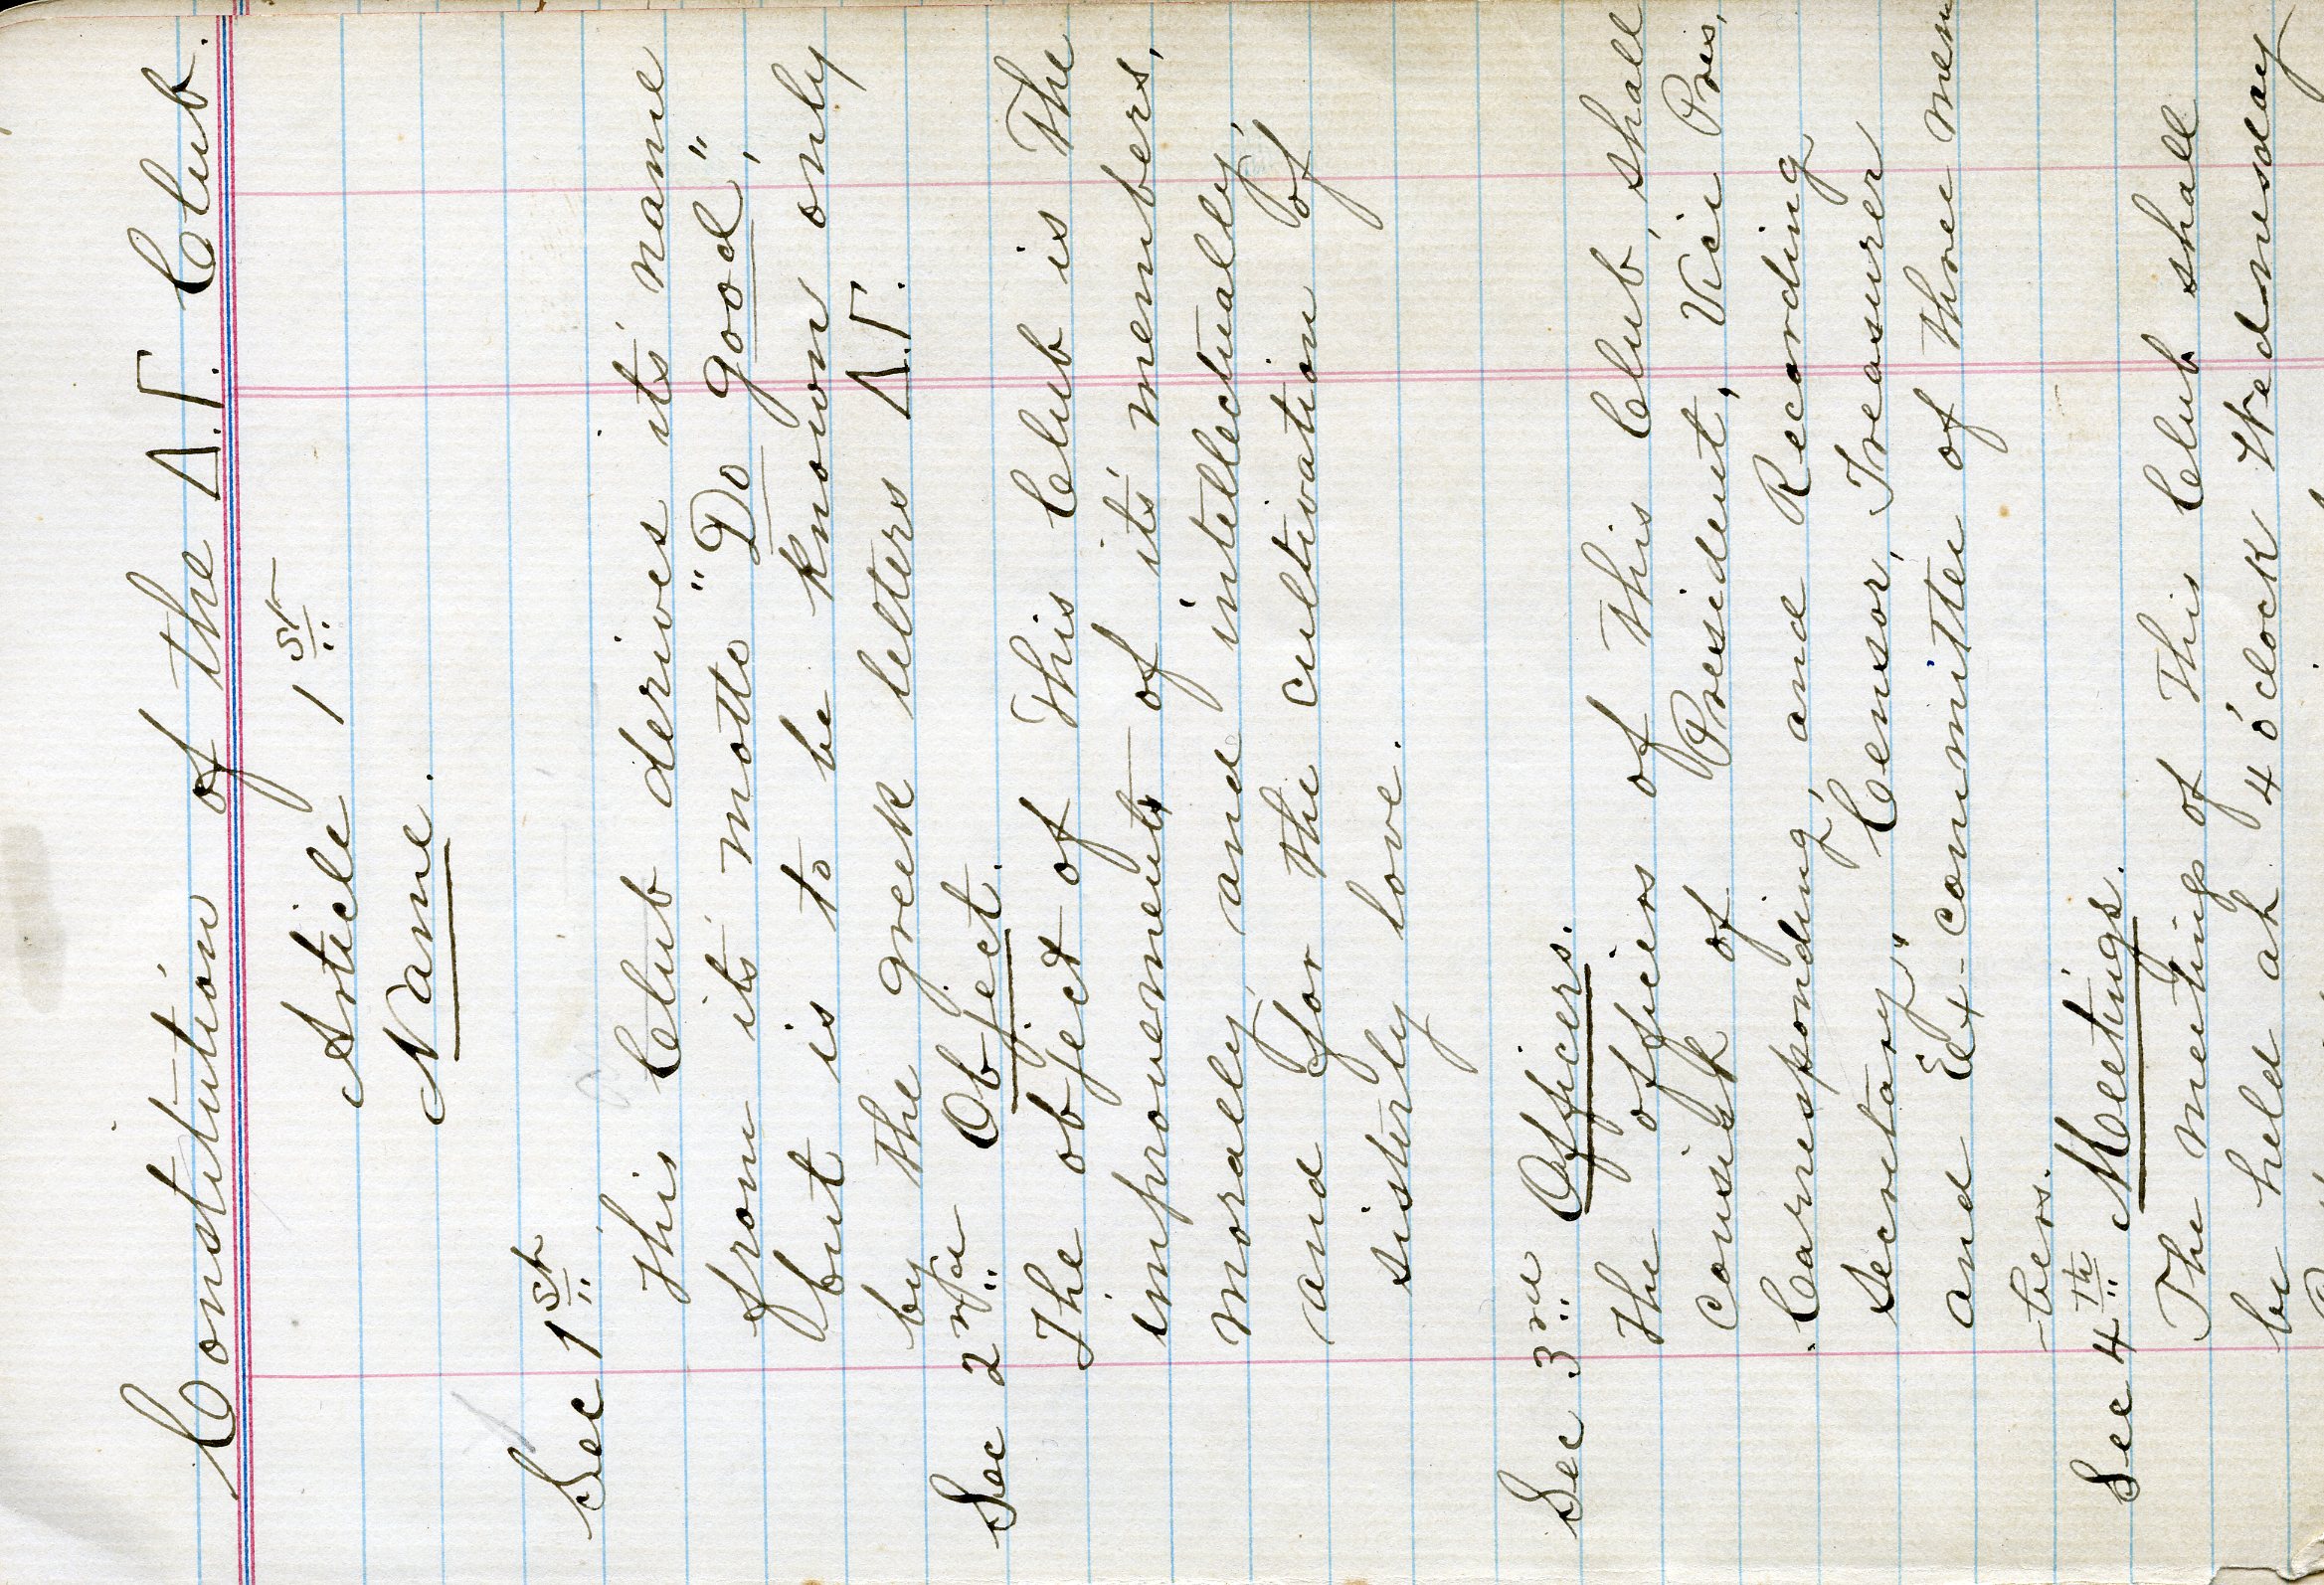 Constitution of the Δ.Γ. Club.
Article 1st
Name.
Sec 1st
This Club derives it's name
from it's motto "Do good,"
but is to be known only
by the greek letters Δ.Γ.
Sec 2nd Object.
The object of this Club is the
improvement of it's members,
morally, and intellectually,
and for the cultivation of
sisterly love.
Sec 3rd Officers.
The officers of this Club, shall
consist of President, Vice Pres,
Corresponding, and Recording
Secretary, Censor, Treasurer
and Ex-committee of three mem
-bers.
Sec 4th Meetings.
The meetings of this Club shall
be held at 4 o'clock Wednesday